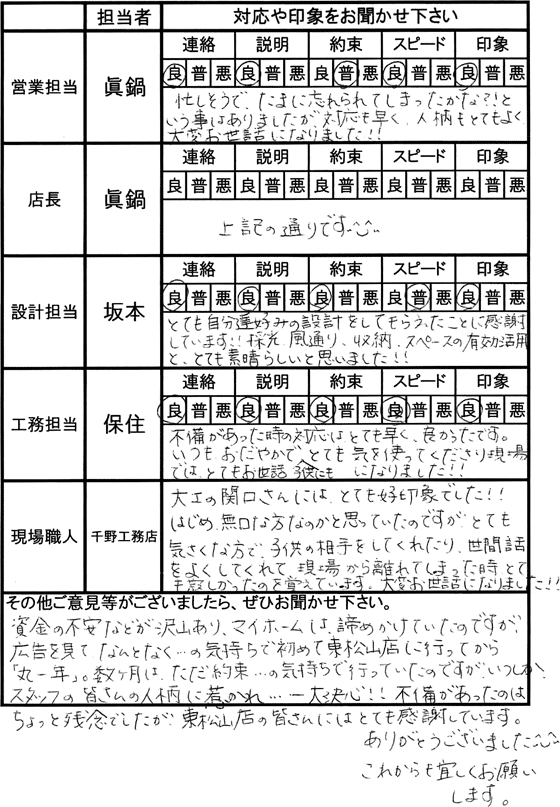 担当者 対応や印象をお聞かせ下さい
営業担当 眞鍋 連絡 説明 約束 スピード 印象
良 普 悪 良 普 悪 良 普 悪 良 普 悪 良 普 悪
忙しそうで、たまに忘れられてしまったかな?!と
いう事はありましたが、対応も早く、人柄もとてもよく
大変お世話になりました!!
店長 眞鍋 連絡 説明 約束 スピード 印象
良 普 悪 良 普 悪 良 普 悪 良 普 悪 良 普 悪
上記の通りです
設計担当 坂本 連絡 説明 約束 スピード 印象
良 普 悪 良 普 悪 良 普 悪 良 普 悪 良 普 悪
とても自分達好みの設計をしてもらえたことに感謝
しています!! 採光、風通り、収納、スペースの有効活用
と、とても素晴らしいと思いました!!
工務担当 保住 連絡 説明 約束 スピード 印象
良 普 悪 良 普 悪 良 普 悪 良 普 悪 良 普 悪
不備があった時の対応は、とても早く、良かったです。
いつも、おだやかで、とても気を使ってくださり現場
では、とてもお世話 子供にも になりました!!
現場職人 千野工務店
大工の関口さんには、とても好印象でした!!
はじめ、無口な方なのかと思っていたのですが、とても
気さくな方で、子供の相手をしてくれたり、世間話
をよくしてくれて、現場から離れてしまった時とて
も寂しかったのを覚えています。大変お世話になりました!!
その他ご意見等がございましたら、ぜひお聞かせ下さい。
資金の不安などが沢山あり、マイホームは、諦めかけていたのですが、
広告を見て なんとなく…の気持ちで初めて東松山店に行ってから
「丸一年」。数ヶ月は、ただ約束…の気持ちで行っていたのですが、いつしか、
スタッフの皆さんの人柄に惹かれ…一大決心!! 不備があったのは
ちょっと残念でしたが、東松山店の皆さんにはとても感謝しています。
ありがとうございました
これからも宜しくお願い
します。